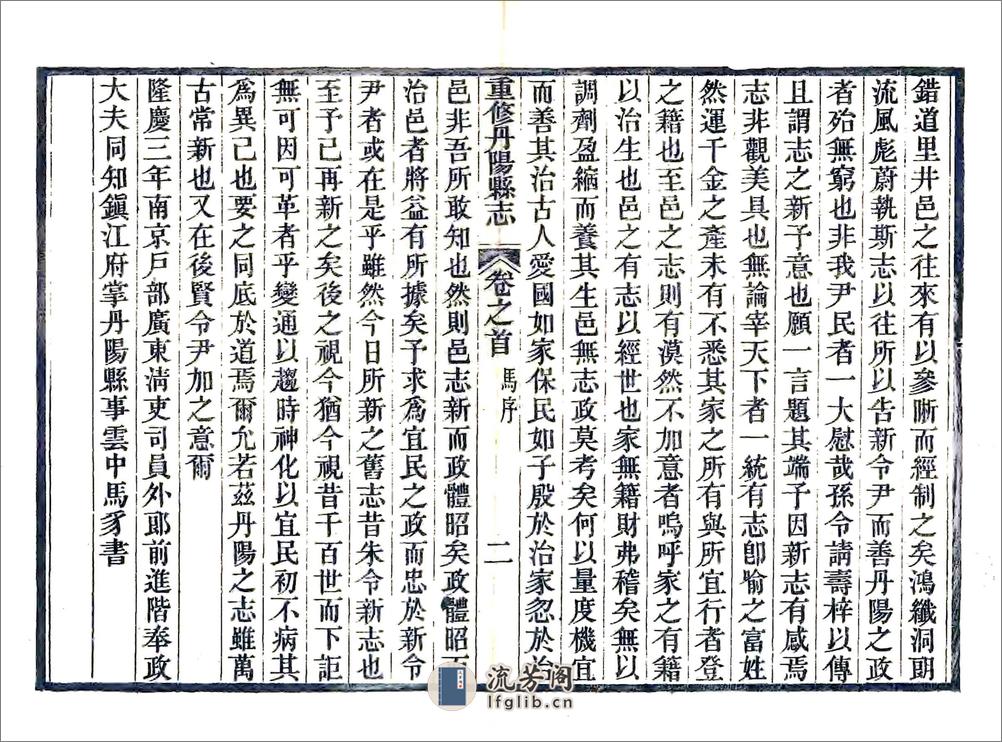 錯道里井邑之往來有以參晰而經制之矣鴻纖洞朗
流風彪蔚執斯志以往所以告新令尹而善丹陽之政
者殆無窮也非我尹民者一大慰哉孫令請壽梓以傳
且謂志之新予意也願一言題其端予因新志有感焉
志非觀美具也無論宰天下者一統有志卽喻之富姓
然運千金之產未有不悉其家之所有與所宜行者登
之籍也至邑之志則有漠然不加意者嗚呼家之有籍
以治生也邑之有志以經世也家無籍財弗稽矣無以
調劑盈縮而養其生邑無志政莫考矣何以量度機宜
而善其治古人愛國如家保民如子殷於治家忽於治
重修丹陽縣志 卷之首 馬序 二
邑非吾所敢知也然則邑志新而政體昭矣政體昭而
治邑者將益有所據矣予求為宜民之政而忠於新令
尹者或在是乎雖然今日所新之舊志昔朱令新志也
至予已再新之矣後之視今猶今視昔千百世而下詎
無可因可革者乎變通以趨時神化以宜民初不病其
為異己也要之同底於道焉爾允若茲丹陽之志雖萬
古常新也又在後賢令尹加之意爾
隆慶三年南京戶部廣東清吏司員外郎前進階奉政
大夫同知鎮江府掌丹陽縣事雲中馬豸書
流芳阁
lfglib.cn